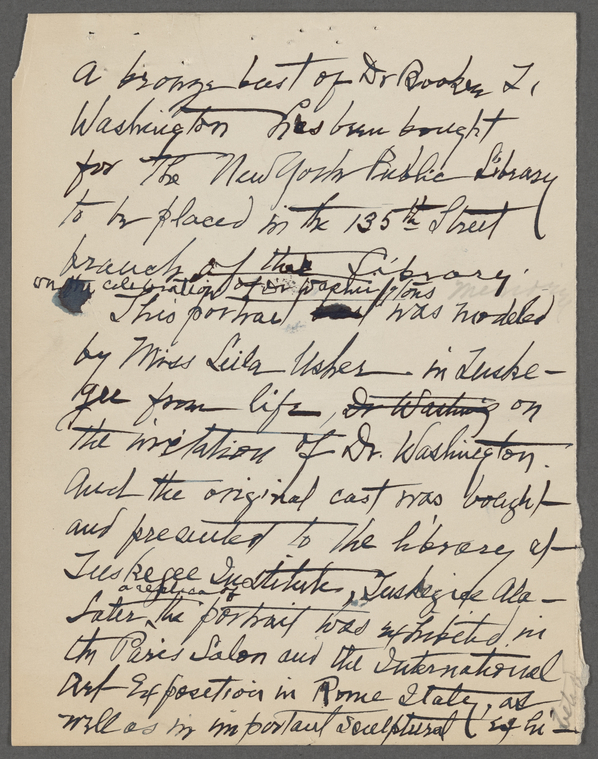 A bronze bust of Dr Booker T.
Washington has been bought
for the New York Public Library
to be placed in the 135th Street
branch of the Library.
on the celebration of Dr Washingtons
This portrait was modeled
by Miss Leila Usher in Tuske-
gee from life, Dr Washing on
the invitation of Dr. Washington.
And the original cast was bought
and presented to the library of
Tuskegee Institute, Tuskegee Ala-
a replica of
Later the portrait was exhibited in
the Paris Salon and the International
Art Exposition in Rome Italy, as
well as in important sculptural Exhi-